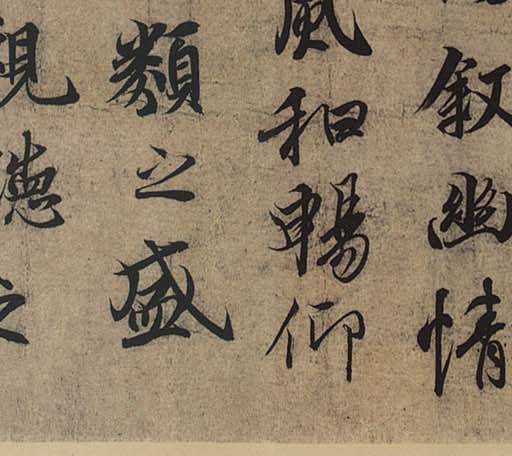 敘幽情
風和暢仰
類之盛
視聽之